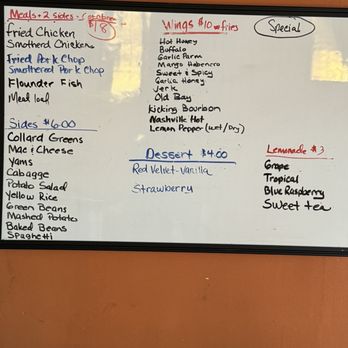 Meals + 2 sides - Cornbread
$18
Fried Chicken
Smotherd Chicken
Fried Pork Chop
Smothered Pork Chop
Flounder Fish
Meat loaf
Sides $6.00
Collard Greens
Mac & Cheese
Yams
Cabagge
Potato Salad
Yellow Rice
Green Beans
Mashed Potato
Baked Beans
Spaghetti
Wings $10 w/fries
Hot Honey
Buffalo
Garlic Parm
Mango Habenero
Sweet & Spicy
Garlic Honey
Jerk
Old Bay
Kicking Bourbon
Nashville Hot
Lemon Pepper (wet/Dry)
Dessert $4.00
Red Velvet-Vanilla
Strawberry
Special
Lemonade $3
Grape
Tropical
Blue Raspberry
Sweet tea